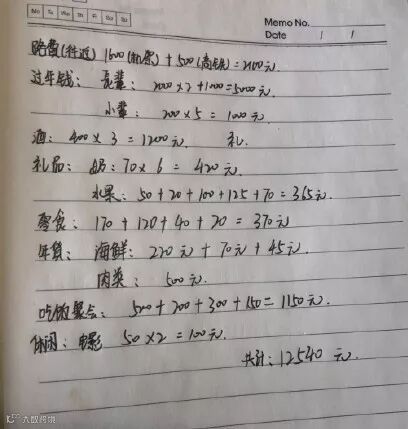 Mo Tu We Th Fr Sa Su
Memo No.
Date / /
路费(往返) 1600(机票) + 500(高铁) = 2100元
过年钱: 长辈: 2000×2+1000=5000元
小辈: 200×5=1000元
酒: 400×3=1200元. 礼
礼品: 奶: 70×6=420元
水果: 50+20+100+125+70=365元
零食: 170+120+40+20=370元
年货: 海鲜: 220元+70元+45元
肉类: 500元.
吃饭聚会: 500+200+300+150=1150元.
休闲: 电影 50×2=100元.
共计: 12540元.
大数跨境